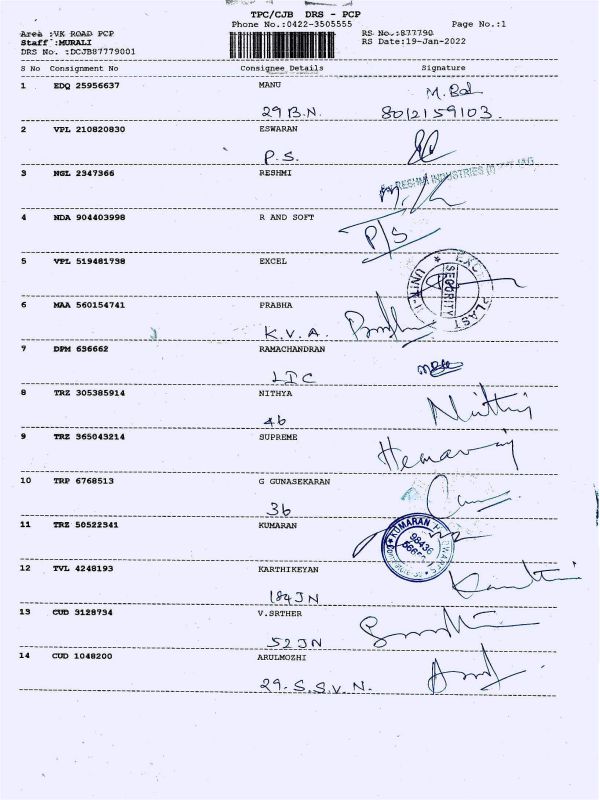 TPC/CJB DRS - PCP
Phone No.:0422-3505555 Page No.:1
Area :VK ROAD PCP RS No.:877790
Staff :MURALI RS Date:19-Jan-2022
DRS No. :DCJB87779001
S No Consignment No Consignee Details Signature
1 EDQ 25956637 MANU
29 B.N. 8012159103.
2 VPL 210820830 ESWARAN
P.S.
3 NGL 2347366 RESHMI
RESHMI INDUSTRIES
4 NDA 904403998 R AND SOFT
P/S
5 VPL 519481738 EXCEL
SECURITY
6 MAA 560154741 PRABHA
K.V.A.
7 DPM 636662 RAMACHANDRAN
LIC
8 TRZ 305385914 NITHYA
46
9 TRZ 365043214 SUPREME
10 TRP 6768513 G GUNASEKARAN
36
11 TRZ 50522341 KUMARAN
KUMARAN
98436
12 TVL 4248193 KARTHIKEYAN
184 JN
13 CUD 3128734 V.SRTHER
52 JN
14 CUD 1048200 ARULMOZHI
29. S.S.V.N.